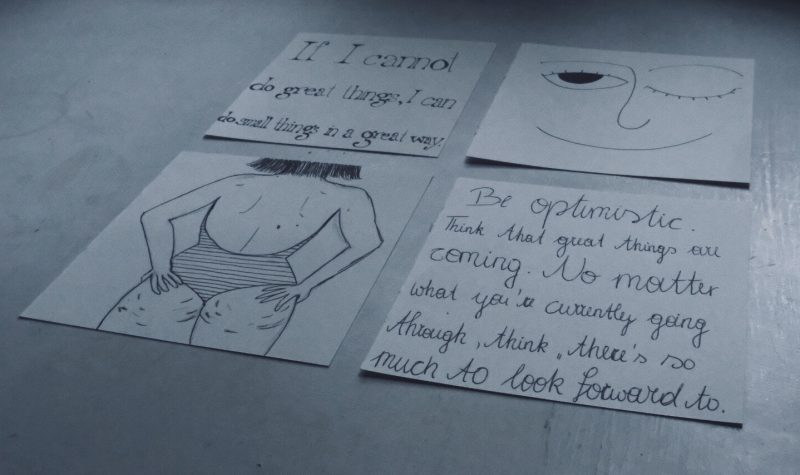 If I cannot
do great things, I can
do small things in a great way.
Be optimistic.
Think that great things are
coming. No matter
what you're currently going
through, think, there's so
much to look forward to.